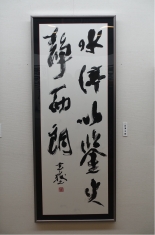 水停以鑒火
靜而朗